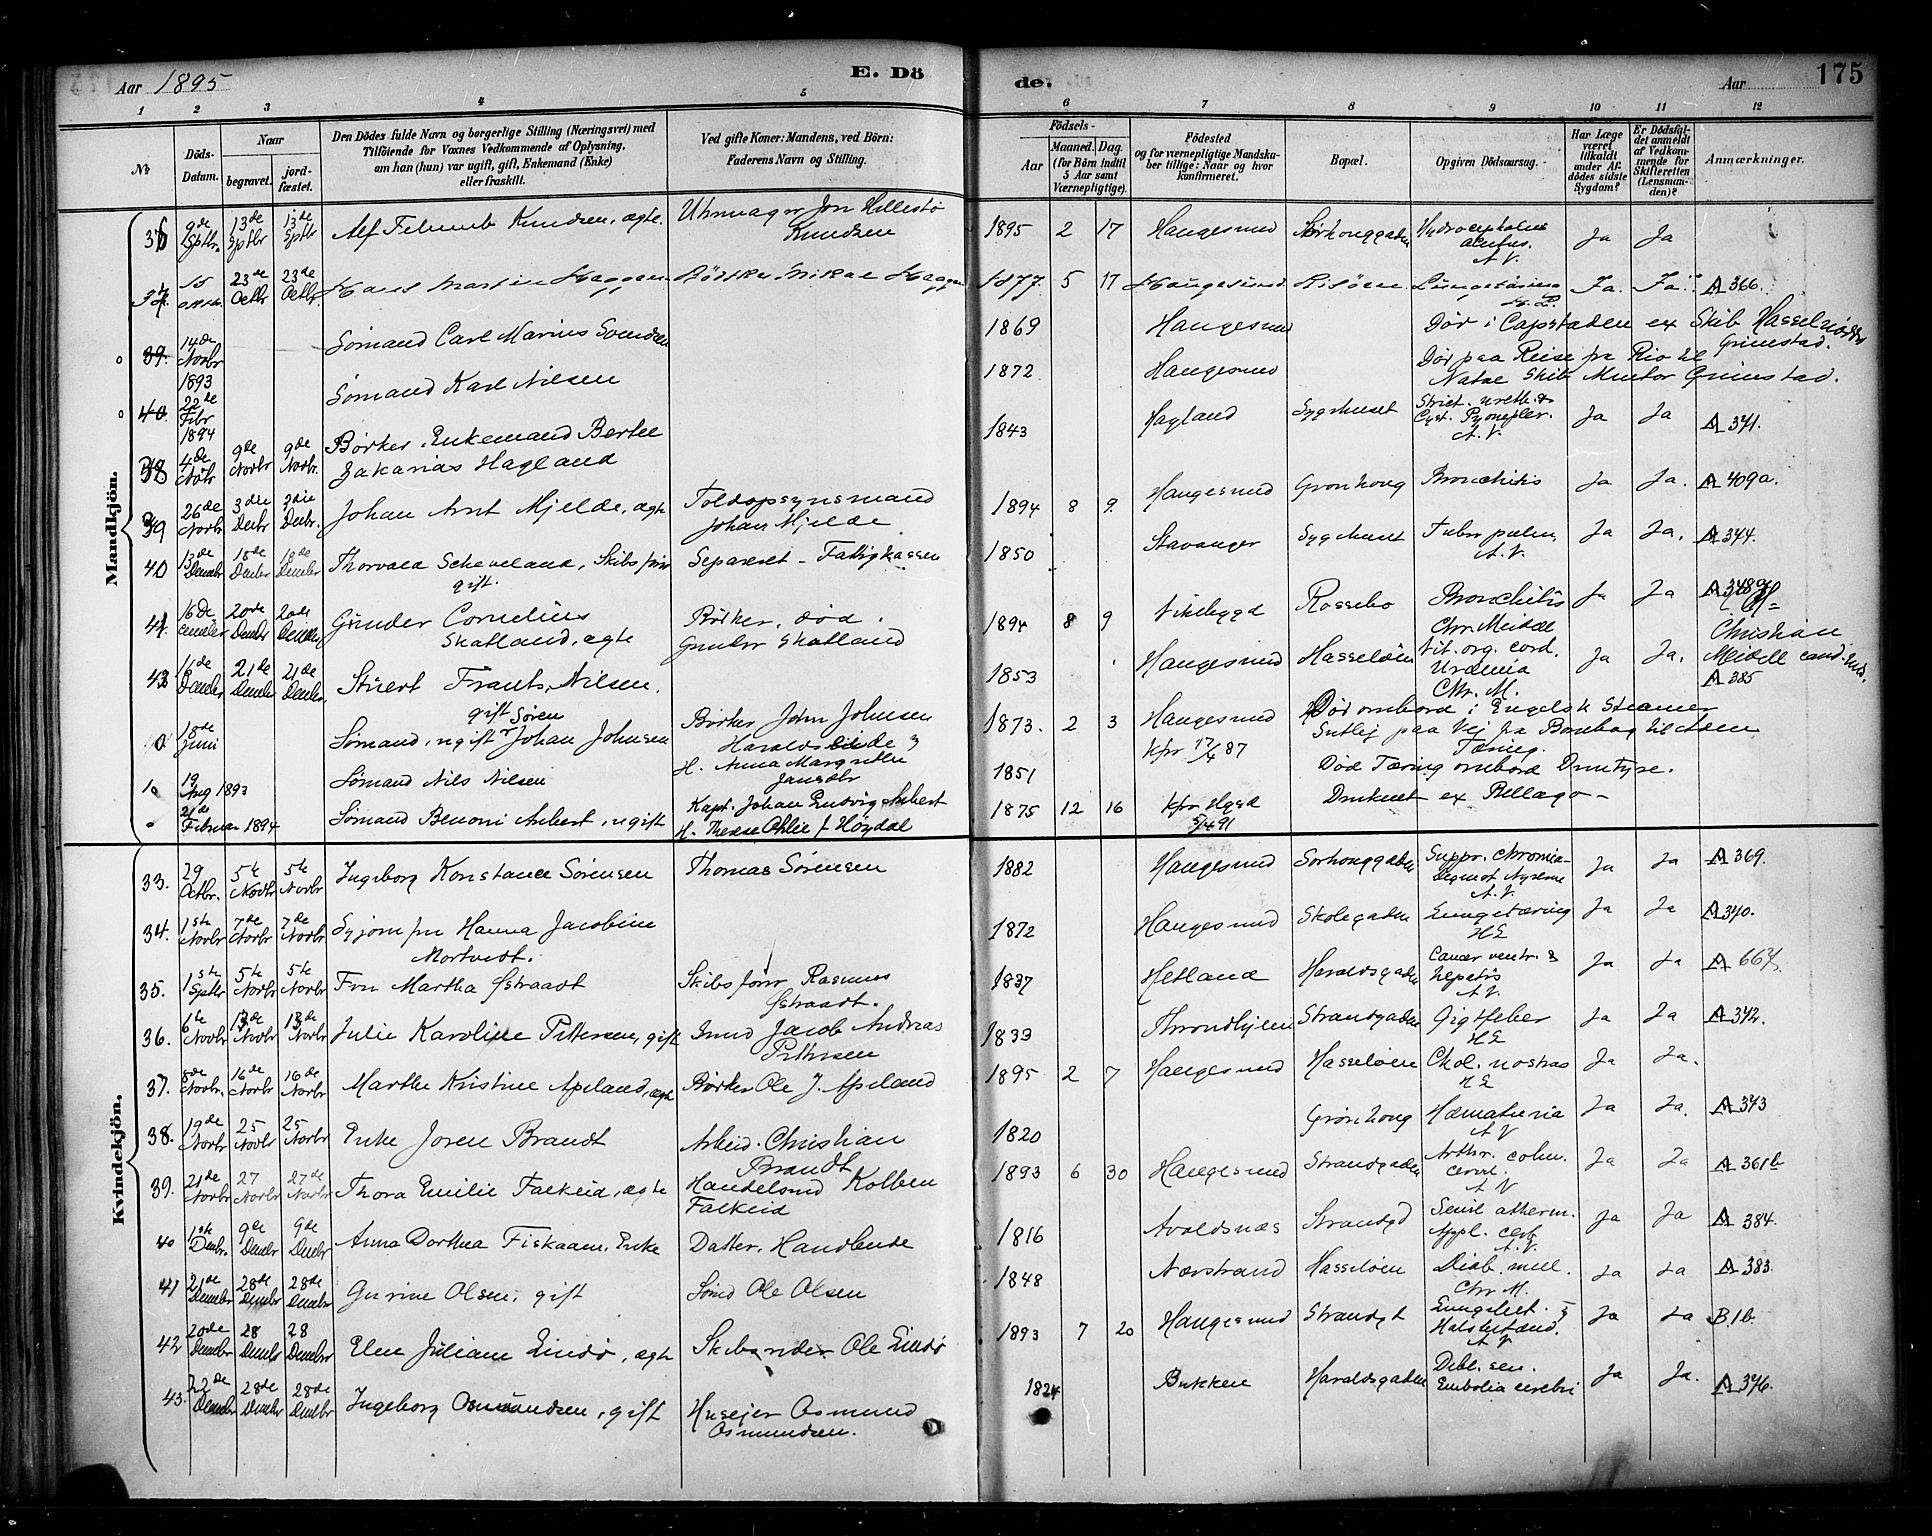 Aar 1895
E. Dö
de.
Aar
175
1 2 3 4 5 6 7 8 9 10 11 12
No
Döds-Datum.
Naar
begravet.
jord-fæstet.
Den Dödes fulde Navn og borgerlige Stilling (Næringsvei) med
Tilföiende for Voxnes Vedkommende af Oplysning,
om han (hun) var ugift, gift, Enkemand (Enke)
eller fraskilt.
Ved gifte Koner: Mandens, ved Börn:
Faderens Navn og Stilling.
Födsels-
Aar
Maaned. Dag.
(for Börn indtil
5 Aar samt
Værnepligtige).
Födested
og for værnepligtige Mandska-
ber tillige: Naar og hvor
konfirmeret.
Bopæl.
Opgiven Dödsaarsag.
Har Læge
været
tilkaldt
under Af-
dödes sidste
Sygdom?
Er Dödsfal-
det anmeldt
af Vedkom-
mende for
Skifteretten
(Lensman-
den)?
Anmærkninger.
Mandkjön.
36 9de Sptbr. 13de Sptbr 13de Sptbr Alf Knudsen, ægte. Uhrmager Jon Hillestø Knudsen 1895 2 17 Haugesund Nørhauggaden Hydrocephalus acutus. A.V. Ja Ja
37. 15 23de Octbr 23de Octbr. Hans Martin Haggen Bødker Mikal Haggen 1877. 5 17 Haugesund Risøen. Ja. Ja. A 366.
39. 14de Novbr 1893 Sømand Carl Marius Svendsen 1869 Haugesund Død i Capstaden ex Skib Grimstad.
40. 22de Febr 1894 Sømand Karl Nilsen 1872 Haugesund Død paa Reise fra Rio til Natal Skib Mentor Grimstad.
38 4de 9de Novbr 9de Novbr. Bødker, Enkemand Bertel Zakarias Hagland 1843 Hagland Sygehuset Strict. ureth. & Cyst. A.V. Ja Ja A 341.
39 26de Novbr 3die Decbr 3die Decbr. Johan Arnt Mjelde, ægte Toldopsynsmand Johan Mjelde 1894 8 9. Haugesund Grønhaug Bronchitis Ja Ja. A 409a.
40 13de Decmbr 18de Decbr 18de Decmbr Thorvald Scheveland, Skibsfører gift. Separeret - Fattigkassen 1850 Stavanger Sygehuset Tuber pulm. A.V. Ja Ja. A 344.
41. 16de 20de Decmbr 20de Gunder Cornelius Skatland, ægte Bødker, død. Gunder Skatland 1894 8 9 Vikebygd Rossebo Bronchitis Chr. Meidell Ja Ja
42 16de Decmbr 21de Decmbr 21de Decmbr. Stuert Frants Nilsen, gift 1853 Haugesund Hasseløen Vit. org. cord. Uræmia Chr. M. Ja Ja. Christian Meidell cand. med. A 385
18de Juni Sømand, ugift Søren Johan Johnsen Bødker John Johnsen Haraldseide & H. Anna Margrethe 1873. 2 3 Haugesund kfr 17/4 87 Død ombord i Engelsk Steamer Sutlej paa Vej fra Bombay til Aden Tæring.
19 Aug 1893 Sømand Nils Nilsen 1851 Død Tæring ombord
21de Februar 1894 Sømand Benoni Aubert, ugift Kapt. Johan Ludvig Aubert H. Therese Othlie f Høydal 1875 12 16 kfr Hgsd 5/4 91 Druknet ex Bellagio -
Kvindekjön.
33. 29 Octbr. 5te Novbr 5te Novbr Ingeborg Konstance Sørensen Thomas Sørensen 1882 Haugesund Sørhauggaden Suppr. chronica A.V. Ja Ja A 369.
34. 1ste Novbr 7de Novbr 7de Novbr Syjomfru Hanna Jacobine Mortvedt. 1872 Haugesund Skolegaden Lungetæring H E Ja Ja A 340.
35. 1ste Sptbr 5te Novbr 5te Novbr Fru Martha Østraadt Skibsfører Rasmus Østraadt. 1837 Hetland Haraldsgaden Cancer ventr. & hepatis A V Ja Ja A 667.
36. 6te Novbr 13de Novbr 13de Novbr Julie Karoline Pettersen, gift Smed Jacob Andreas Pettersen 1833 Throndhjem Strandgaden Gigtfeber H E Ja Ja A 342.
37. 8de Novbr. 16de Novbr 16de Novbr Marthe Kristine Apeland, ægte Bødker Ole J. Apeland 1895 2 7 Haugesund Hasseløen Chol. nostras H E Ja Ja.
38. 19de Novbr 25 Novbr 25 Novbr Enke Joren Brandt Arbeid. Christian Brandt 1820 Grønhaug Hæmaturia A V Ja Ja. A 343
39. 21de Novbr 27 Novbr 27de Novbr Thora Emilie Falkeid, ægte Handelsmd Kolben Falkeid 1893 6 30 Haugesund Strandgaden Arthr. colum. cervi. A V Ja Ja A 361b
40 1ste Decbr. 9de Decmbr 9de Decmbr Anna Dorthea Fiskaaen, Enke Datter, Handlende 1816 Avaldsnæs Strandgd Senil atherm. Appl. cerb A.V. Ja Ja A 384.
41 21de Decmbr 28de Decmbr 28de Decmbr Gurine Olsen, gift Sømd Ole Olsen 1848 Nærstrand Hasseløen Diab. mell. Chr M. Ja Ja A 383.
42 20de Decmbr 28 Decmbr 28 Decmbr Elen Juliane Lindø, ægte Skibsreder Ole Lindø 1893 7 20 Haugesund Strandgt A V Ja Ja B 1b.
43. 22de Decmbr 28de Decmbr 28de Decmbr Ingeborg Osmundsen, gift Huseier Osmund Osmundsen. 1824 Bukken Haraldsgaden Debil. sen. Embolia cerebri Ja Ja. A 346.